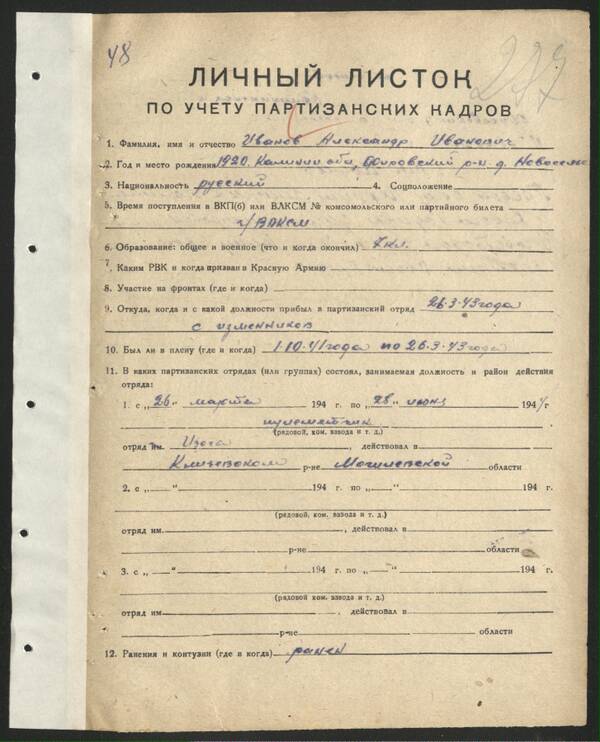 48
247
ЛИЧНЫЙ ЛИСТОК
ПО УЧЕТУ ПАРТИЗАНСКИХ КАДРОВ
1. Фамилия, имя и отчество Иванов Александр Иванович
2. Год и место рождения 1920. Калинин обл, р-н д. Новоселье
3. Национальность русский 4. Соцположение
5. Время поступления в ВКП(б) или ВЛКСМ № комсомольского или партийного билета
ч/ВЛКСМ
6. Образование: общее и военное (что и когда окончил) 7 кл.
7. Каким РВК и когда призван в Красную Армию
8. Участие на фронтах (где и когда)
9. Откуда, когда и с какой должности прибыл в партизанский отряд 26.3.43 года
с изменников
10. Был ли в плену (где и когда) 1.10.41 года по 26.3.43 года
11. В каких партизанских отрядах (или группах) состоял, занимаемая должность и район действия
отряда:
1. с „26" марта 194 г. по „28" июня 1944 г.
пулеметчик
(рядовой, ком. взвода и т. д.)
отряд им. Изоха , действовал в
Кличевском р-не Могилевской области
2. с „ " 194 г. по „ " 194 г.
(рядовой, ком. взвода и т. д.)
отряд им. , действовал в
р-не области
3. с „ " 194 г. по „ " 194 г.
(рядовой, ком. взвода и т. д.)
отряд им. , действовал в
р-не области
12. Ранения и контузии (где и когда) ранен